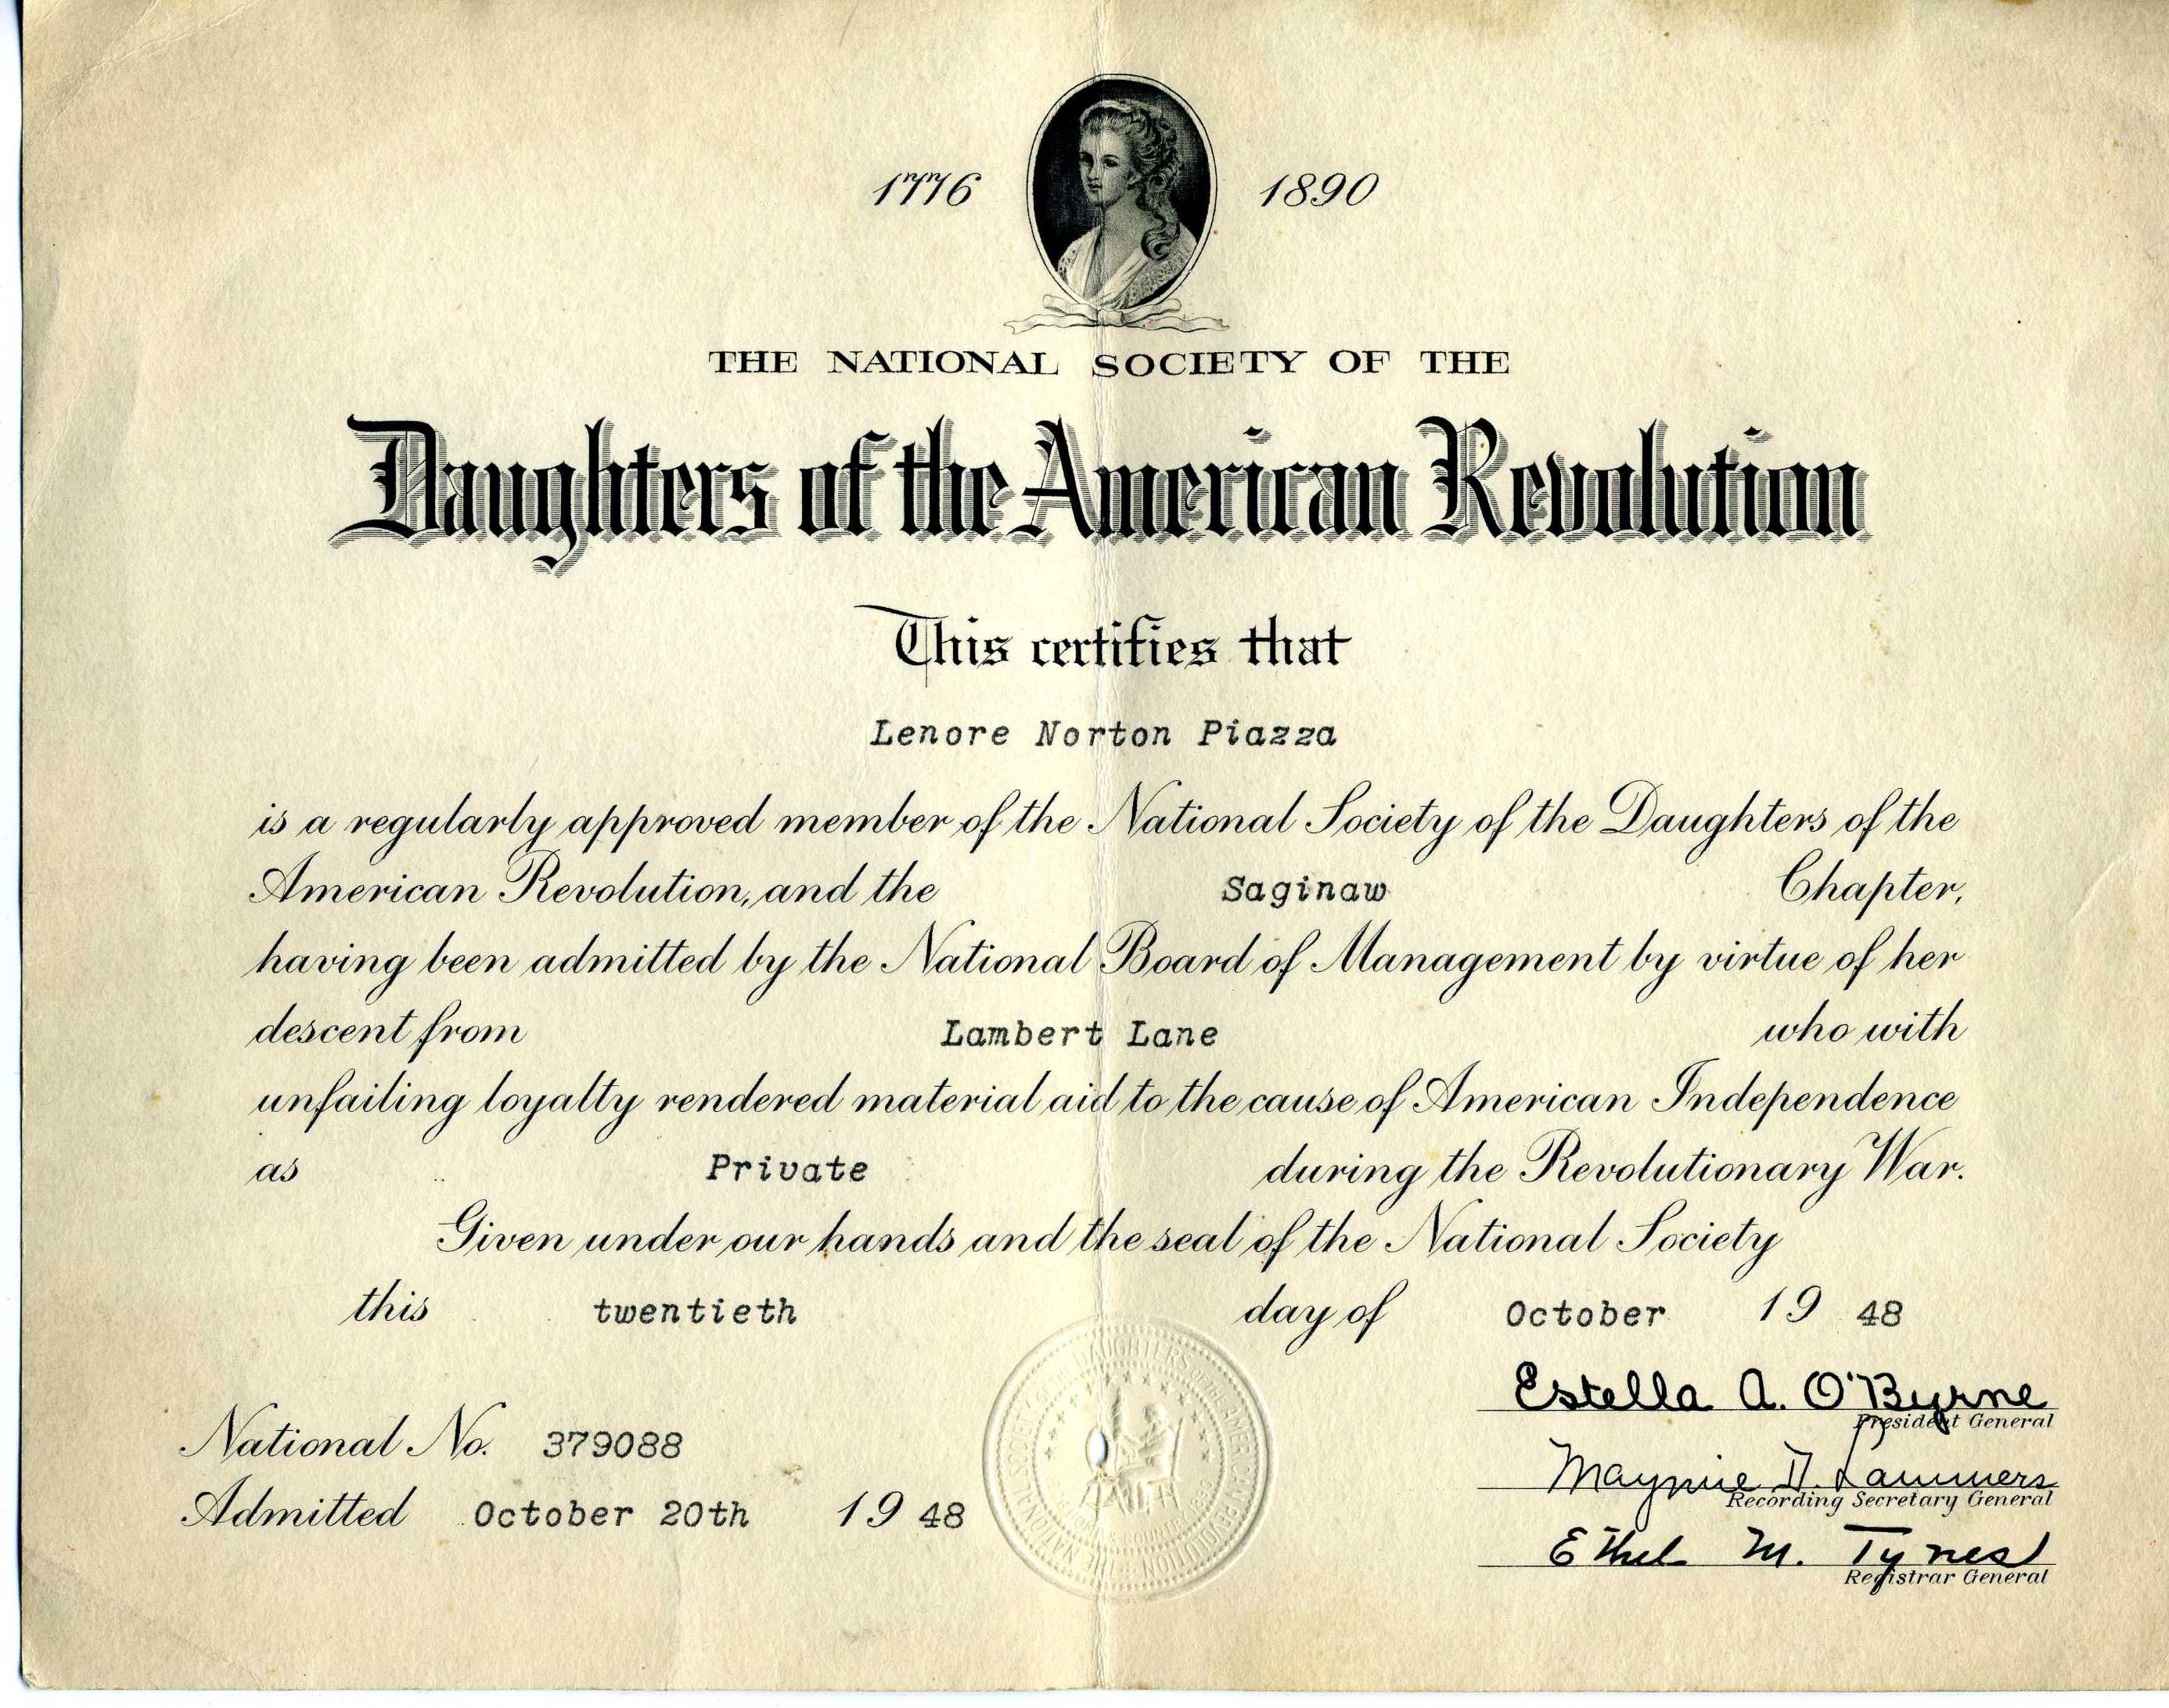 1776 1890
THE NATIONAL SOCIETY OF THE
Daughters of the American Revolution
This certifies that
Lenore Norton Piazza
is a regularly approved member of the National Society of the Daughters of the
American Revolution, and the Saginaw Chapter,
having been admitted by the National Board of Management by virtue of her
descent from Lambert Lane who with
unfailing loyalty rendered material aid to the cause of American Independence
as Private during the Revolutionary War.
Given under our hands and the seal of the National Society
this twentieth day of October 19 48
Estella A. O'Byrne
President General
National No. 379088
Maymie D Lammers
Recording Secretary General
Admitted October 20th 19 48
Ethel M. Tynes
Registrar General
DAUGHTERS OF THE AMERICAN REVOLUTION
THE NATIONAL SOCIETY OF